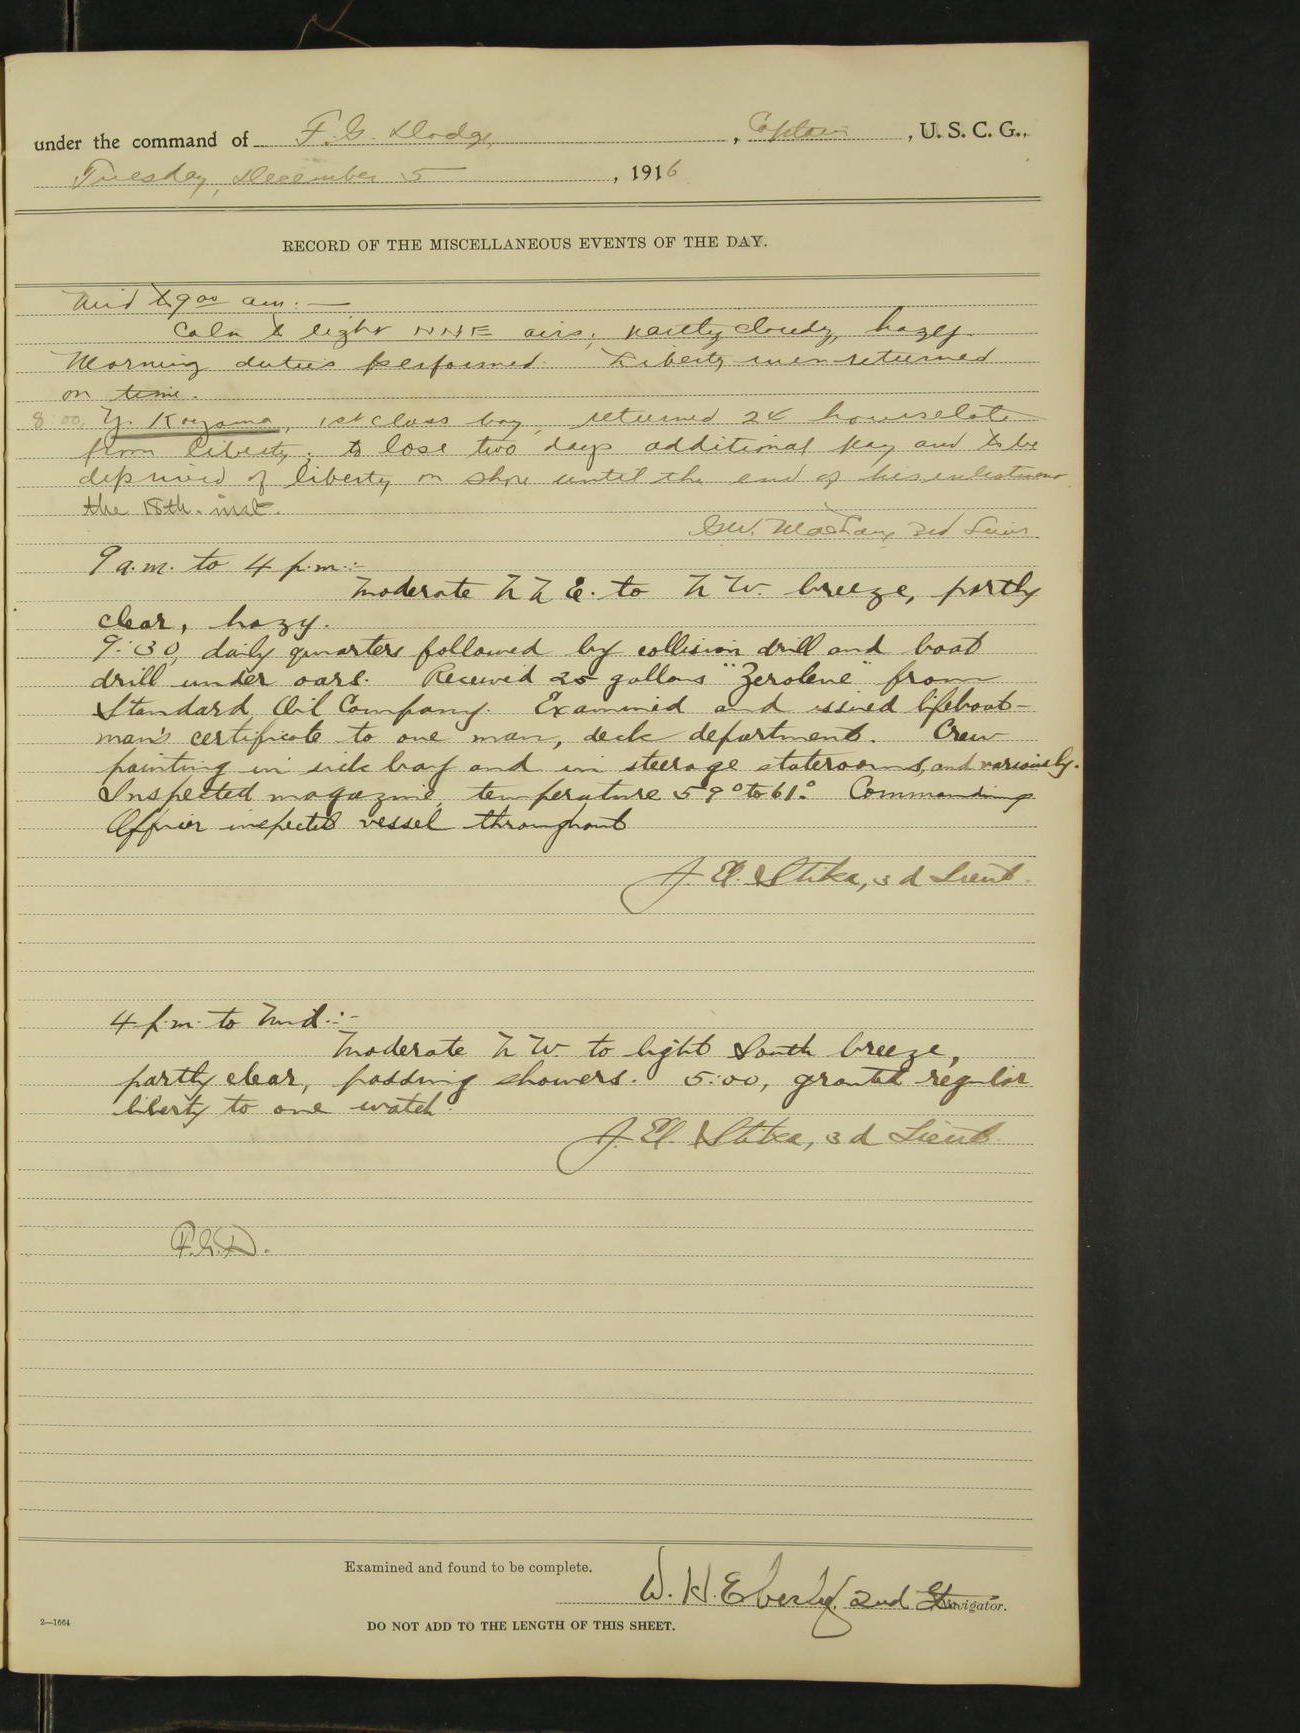 under the command of F. G. Dodge, , Captain , U. S. C. G.,
Tuesday, December 5 , 1916
RECORD OF THE MISCELLANEOUS EVENTS OF THE DAY.
Mid to 9 00 am:—
Calm to light NNE airs, partly cloudy, hazy.
Morning duties performed. Liberty men returned
on time.
8:00, Y. Koyama, 1st class boy, returned 24 hours late
from liberty; to lose two days additional pay and to be
deprived of liberty on shore until the end of his enlistment
the 18th. inst.
3rd Lieut.
9 a.m. to 4 p.m.:-
Moderate N N E. to N W. breeze, partly
clear, hazy.
9:30, daily quarters followed by collision drill and boat
drill under oars. Received 25 gallons "Zerolene" from
Standard Oil Company. Examined and issued lifeboat-
man's certificate to one man, deck department. Crew
painting in sick bay and in steerage staterooms, and variously.
Inspected magazine, temperature 59° to 61°. Commanding
Officer inspected vessel throughout
J. E. Stika, 3d Lieut.
4 p.m. to Mid.:-
Moderate N W. to light South breeze,
partly clear, passing showers. 5:00, granted regular
liberty to one watch.
J. E. Stika, 3d Lieut.
F.G.D.
Examined and found to be complete.
W. H. Eberly, 2nd Lt.
Navigator.
2—1664
DO NOT ADD TO THE LENGTH OF THIS SHEET.